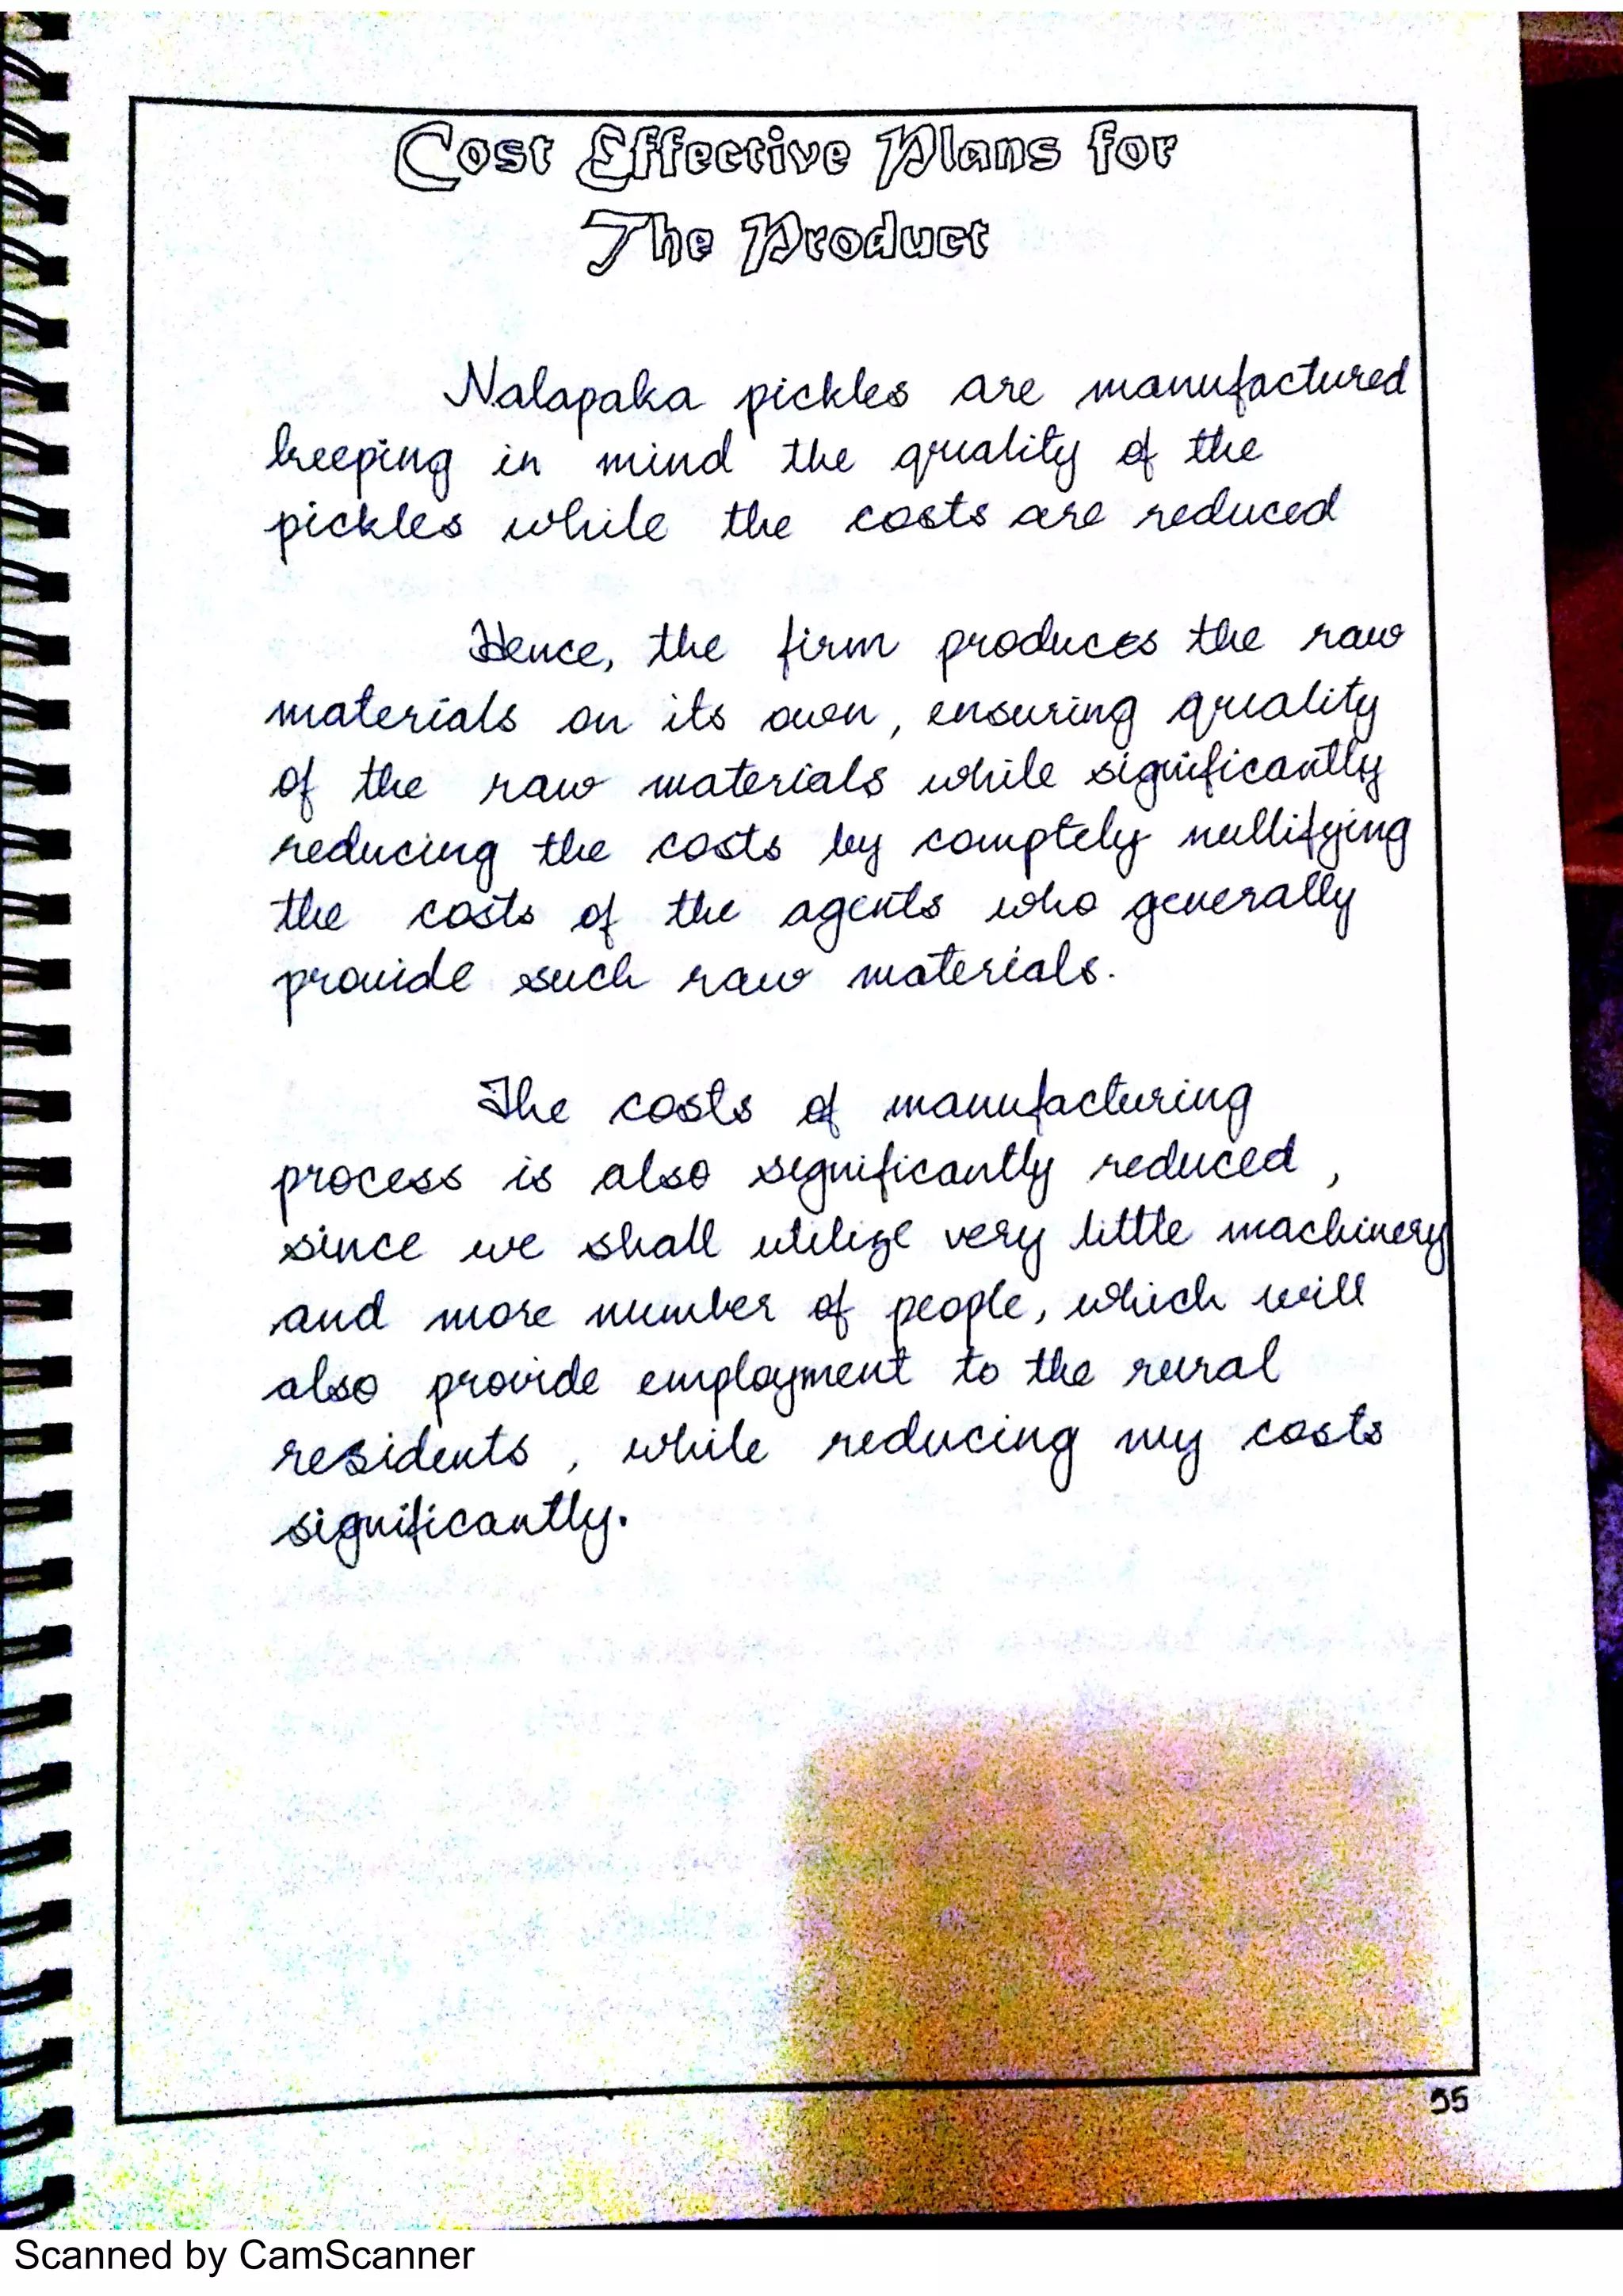 Cost Effective Plans for
The Product
Nalapaka pickles are manufactured
keeping in mind the quality of the
pickles while the costs are reduced
Hence, the firm produces the raw
materials on its own, ensuring quality
of the raw materials while significantly
reducing the costs by comptely nullifying
the costs of the agents who generally
provide such raw materials.
The costs of manufacturing
process is also significantly reduced,
since we shall utilize very little machinery
and more number of people, which will
also provide employment to the rural
residents, while reducing my costs
significantly.
35
Scanned by CamScanner